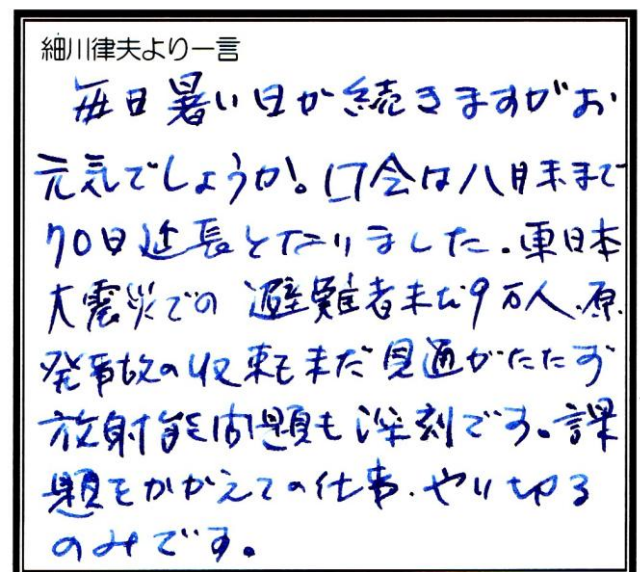 細川律夫より一言
毎日暑い日が続きますがお
元気でしょうか。国会は八月末まで
70日延長となりました。東日本
大震災での避難者まだ9万人、原
発事故の収束もまだ見通がたたず
放射能問題も深刻です。課
題をかかえての仕事、やり切る
のみです。